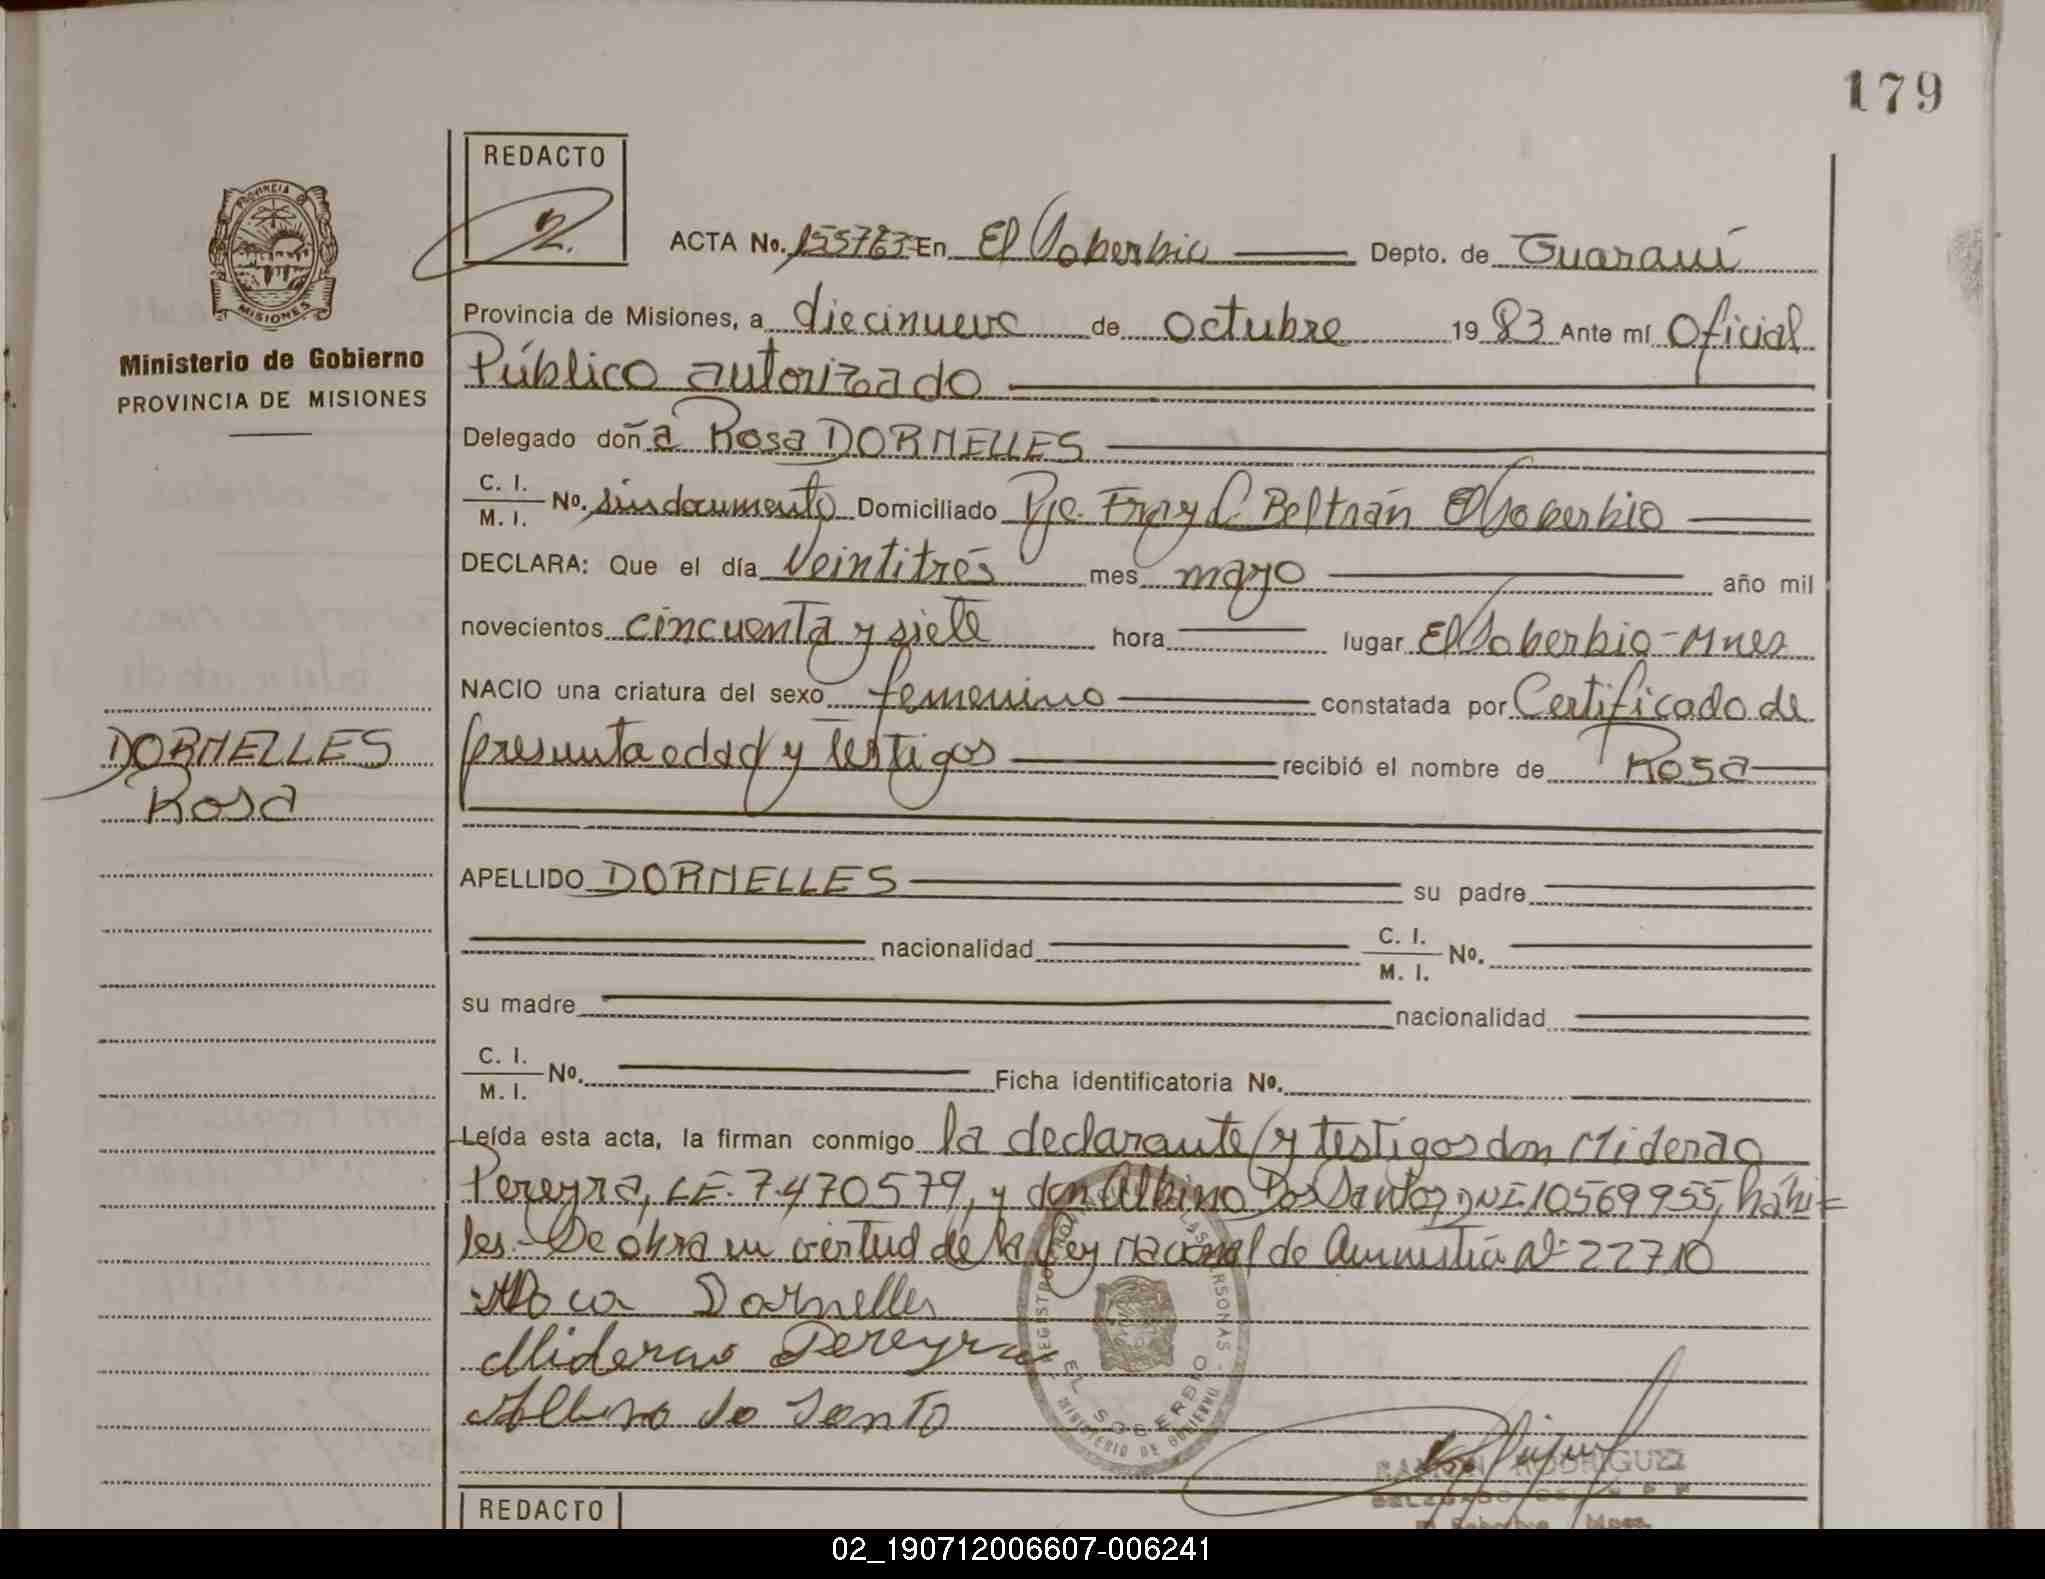 179
REDACTO
ACTA No. 155763 En El Soberbio Depto. de Guaraní
Provincia de Misiones, a diecinueve de octubre 1983 Ante mí Oficial
Público autorizado
PROVINCIA DE MISIONES
Ministerio de Gobierno
PROVINCIA DE MISIONES
Delegado doña Rosa DORNELLES
C. I. M. I. No. sin documento Domiciliado Pje. Fray L. Beltrán El Soberbio
DECLARA: Que el día Veintitrés mes mayo año mil
novecientos cincuenta y siete hora lugar El Soberbio-Mnes
NACIO una criatura del sexo femenino constatada por Certificado de
presunta edad y testigos recibió el nombre de Rosa
DORNELLES
Rosa
APELLIDO DORNELLES su padre
nacionalidad C. I. M. I. No.
su madre nacionalidad
C. I. M. I. No. Ficha identificatoria No.
Leída esta acta, la firman conmigo la declarante y testigos don Miderao
Pereyra, LE. 7.470579, y don Albino Dos Santos, DNI 10569955, hábi=
les.- Se obra en virtud de la Ley Nacional de Amnistía Nº 22710
Roca Dornelles
Miderao Pereyra
Albino do Santo
PERSONAS
EL SOBERBIO
MINISTERIO DE GOBIERNO
RAMON RODRIGUEZ
DELEGADO
El Soberbio Mnes.
REDACTO
02_190712006607-006241